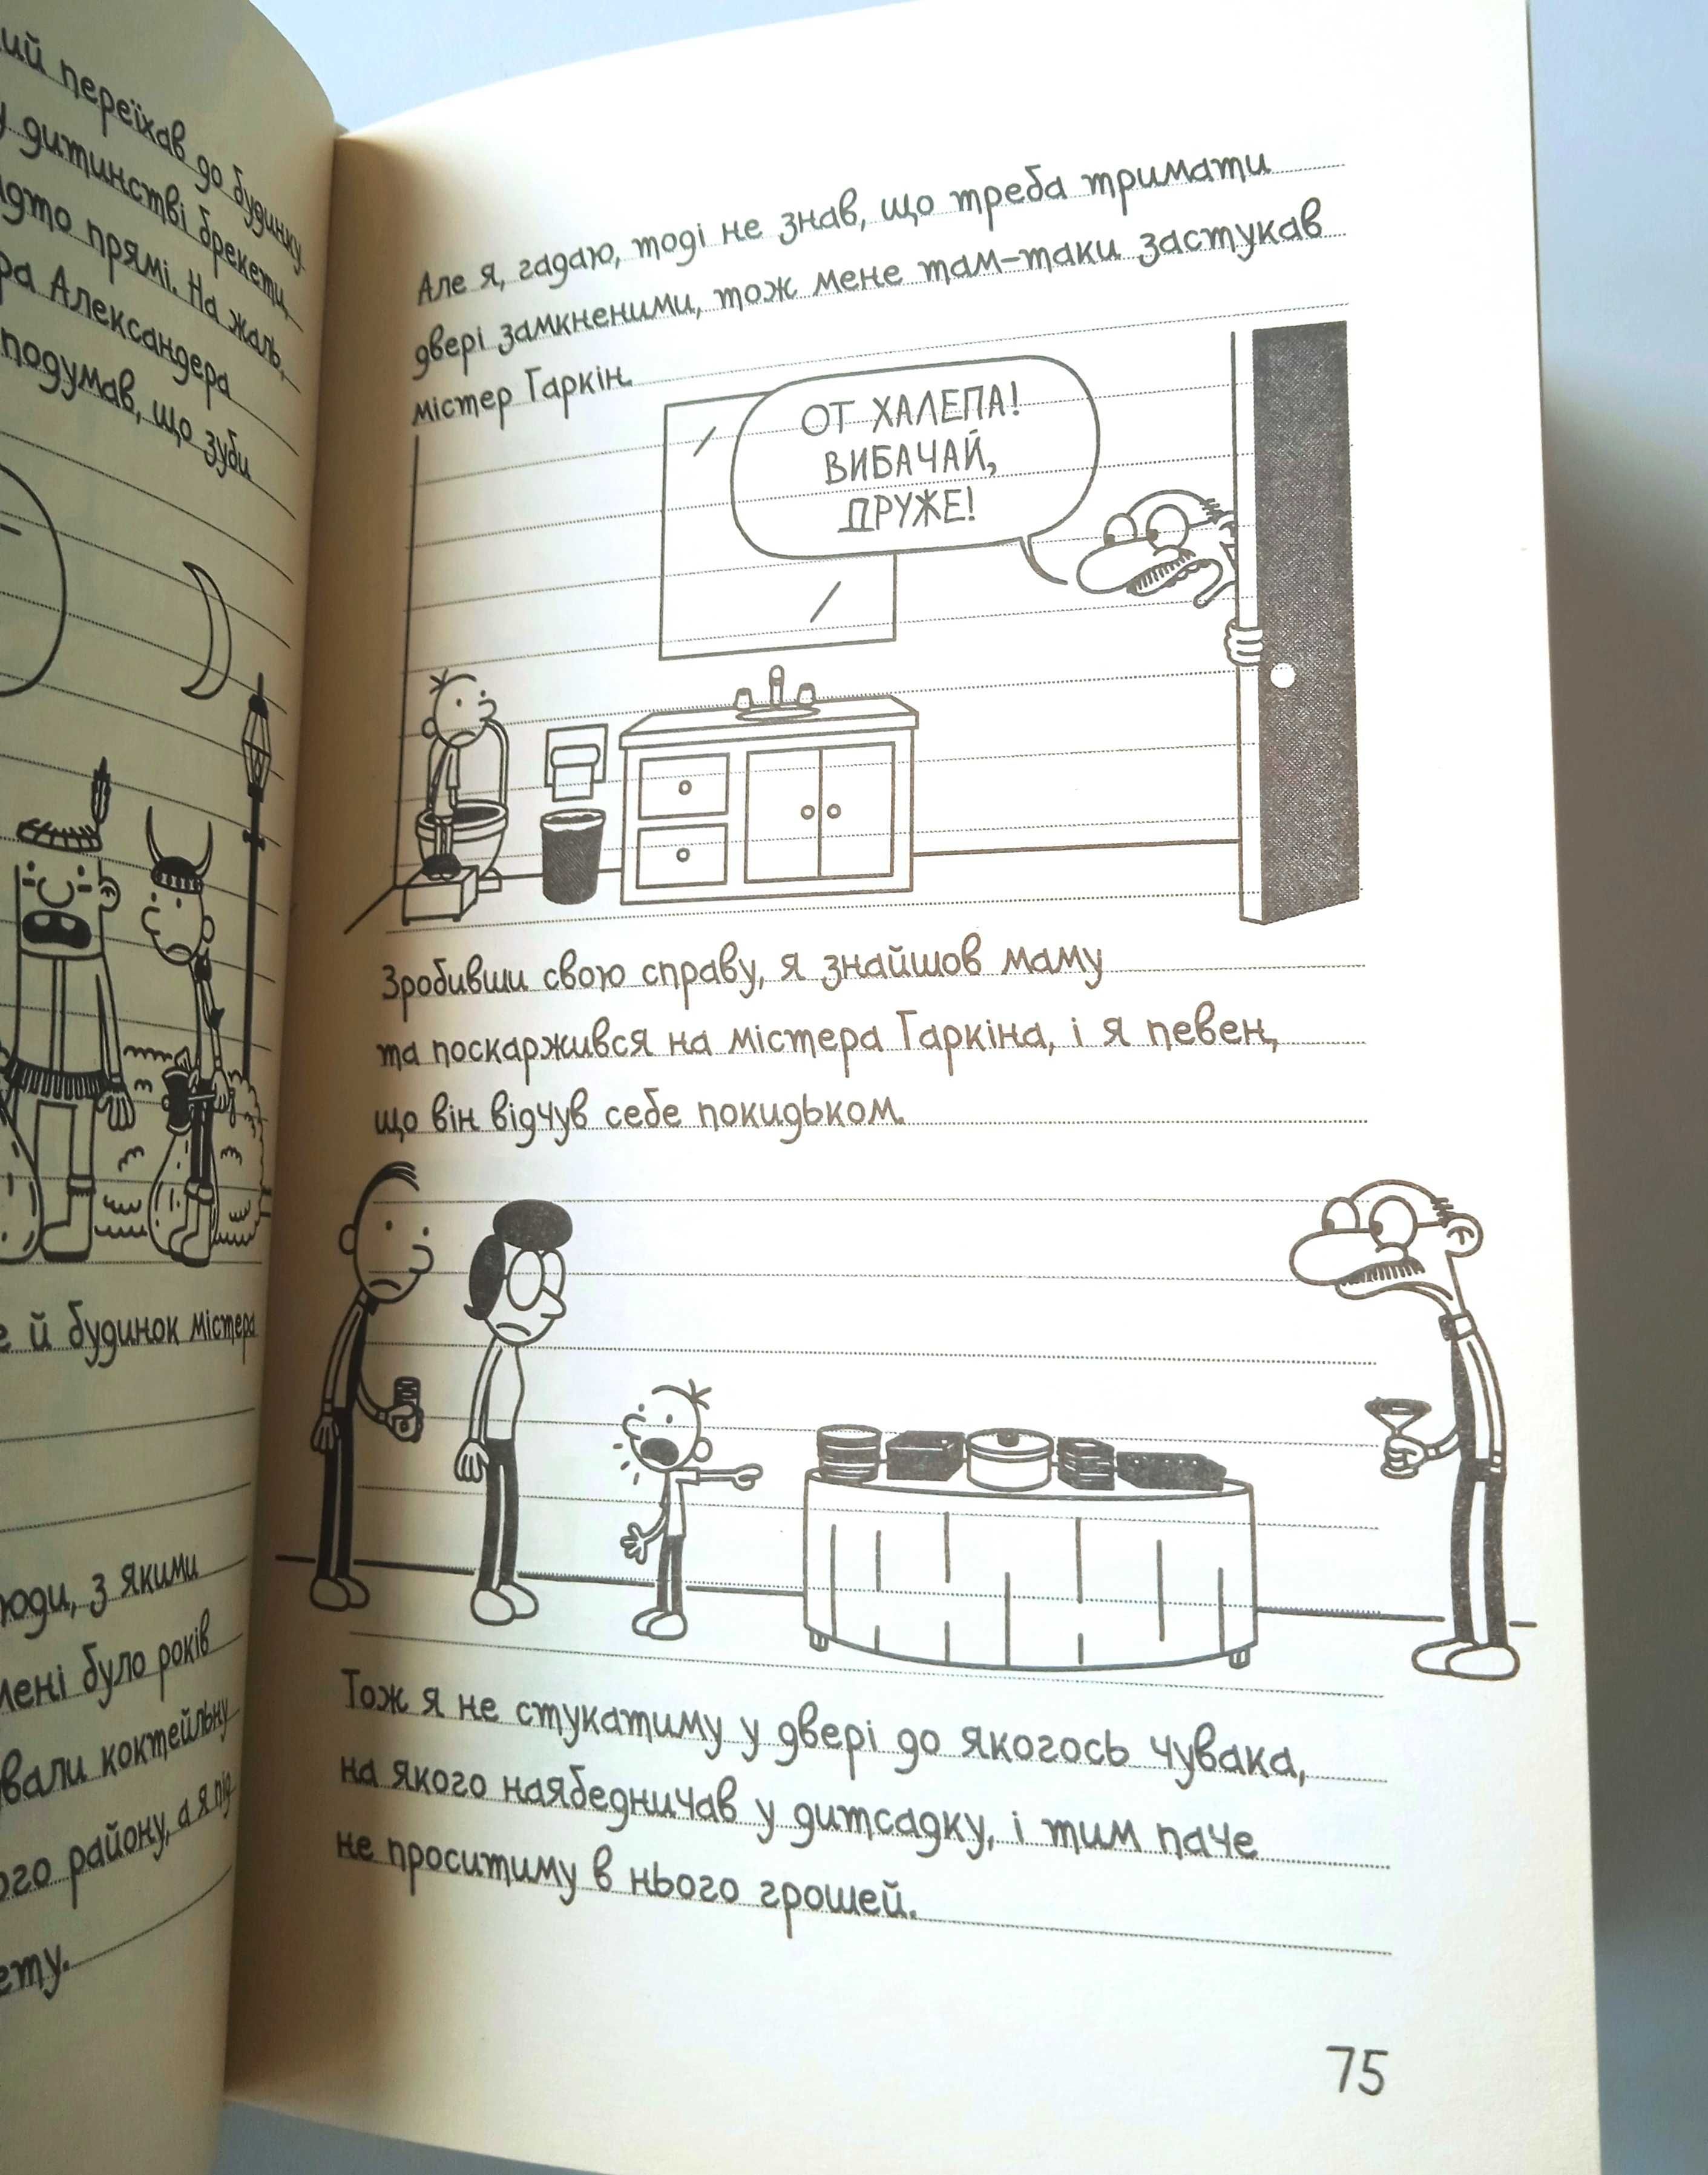 переїхав до будинку
дитинстві брекети,
прямі. На жаль,
Александера
подумав, що зуби
й будинок містера
з якими
було років
коктейльну
району, а я під
Але я, гадаю, тоді не знав, що треба тримати
двері замкненими, тож мене там-таки застукав
містер Гаркін.
ОТ ХАЛЕПА!
ВИБАЧАЙ,
ДРУЖЕ!
Зробивши свою справу, я знайшов маму
та поскаржився на містера Гаркіна, і я певен,
що він відчув себе покидьком.
Тож я не стукатиму у двері до якогось чувака,
на якого наябедничав у дитсадку, і тим паче
не проситиму в нього грошей.
75